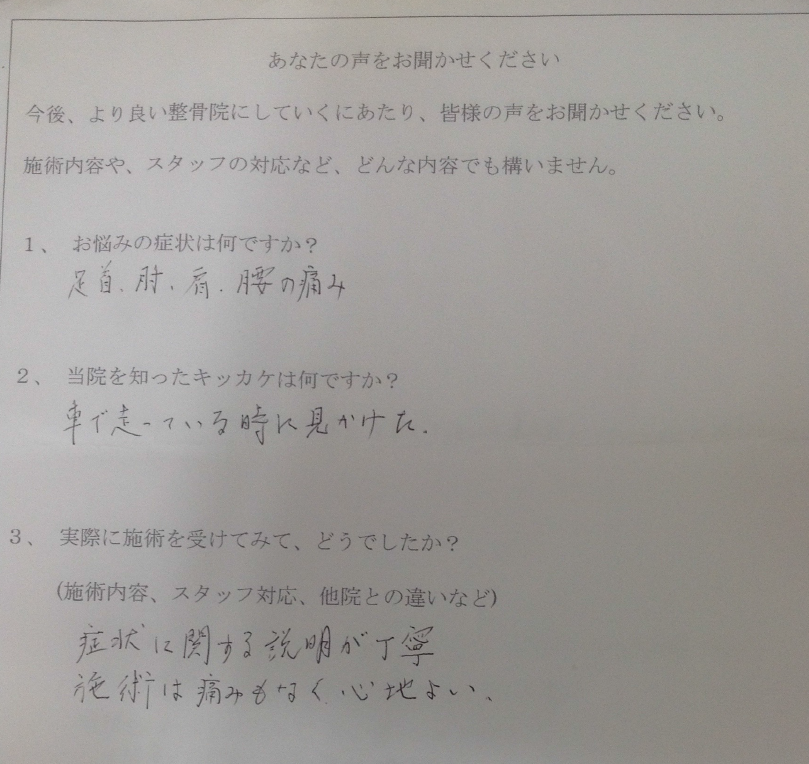 あなたの声をお聞かせください
今後、より良い整骨院にしていくにあたり、皆様の声をお聞かせください。
施術内容や、スタッフの対応など、どんな内容でも構いません。
1、 お悩みの症状は何ですか？
足首、肘、肩、腰の痛み
2、 当院を知ったキッカケは何ですか？
車で走っている時に見かけた.
3、 実際に施術を受けてみて、どうでしたか？
(施術内容、スタッフ対応、他院との違いなど)
症状に関する説明が丁寧
施術は痛みもなく心地よい、